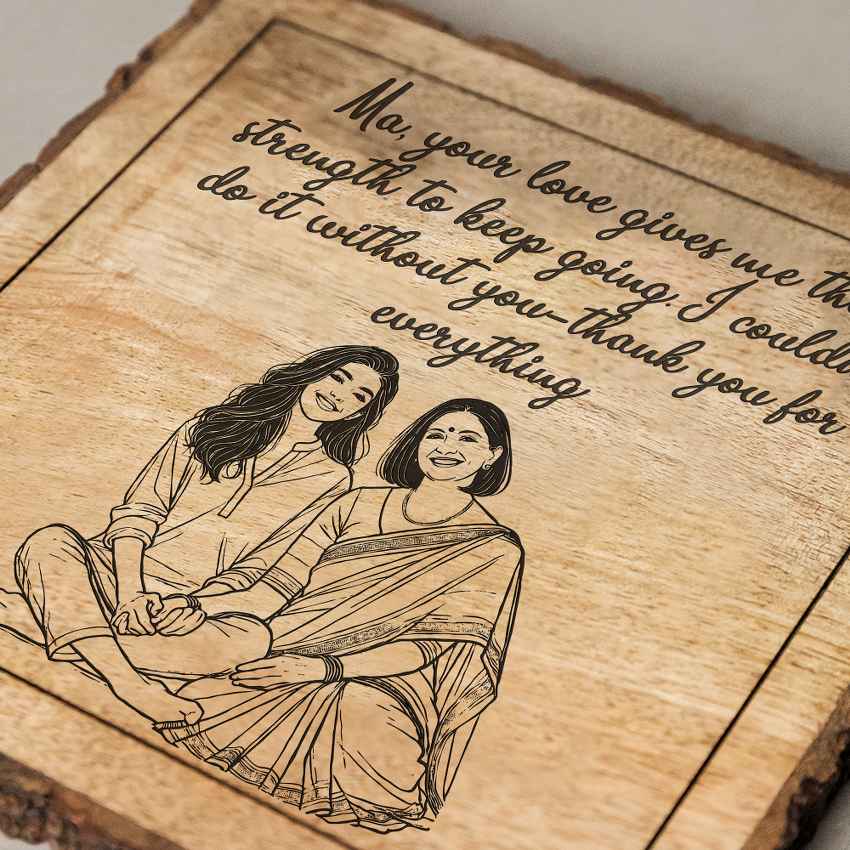 Ma, your love gives me the
strength to keep going. I couldn
do it without you-thank you for
everything